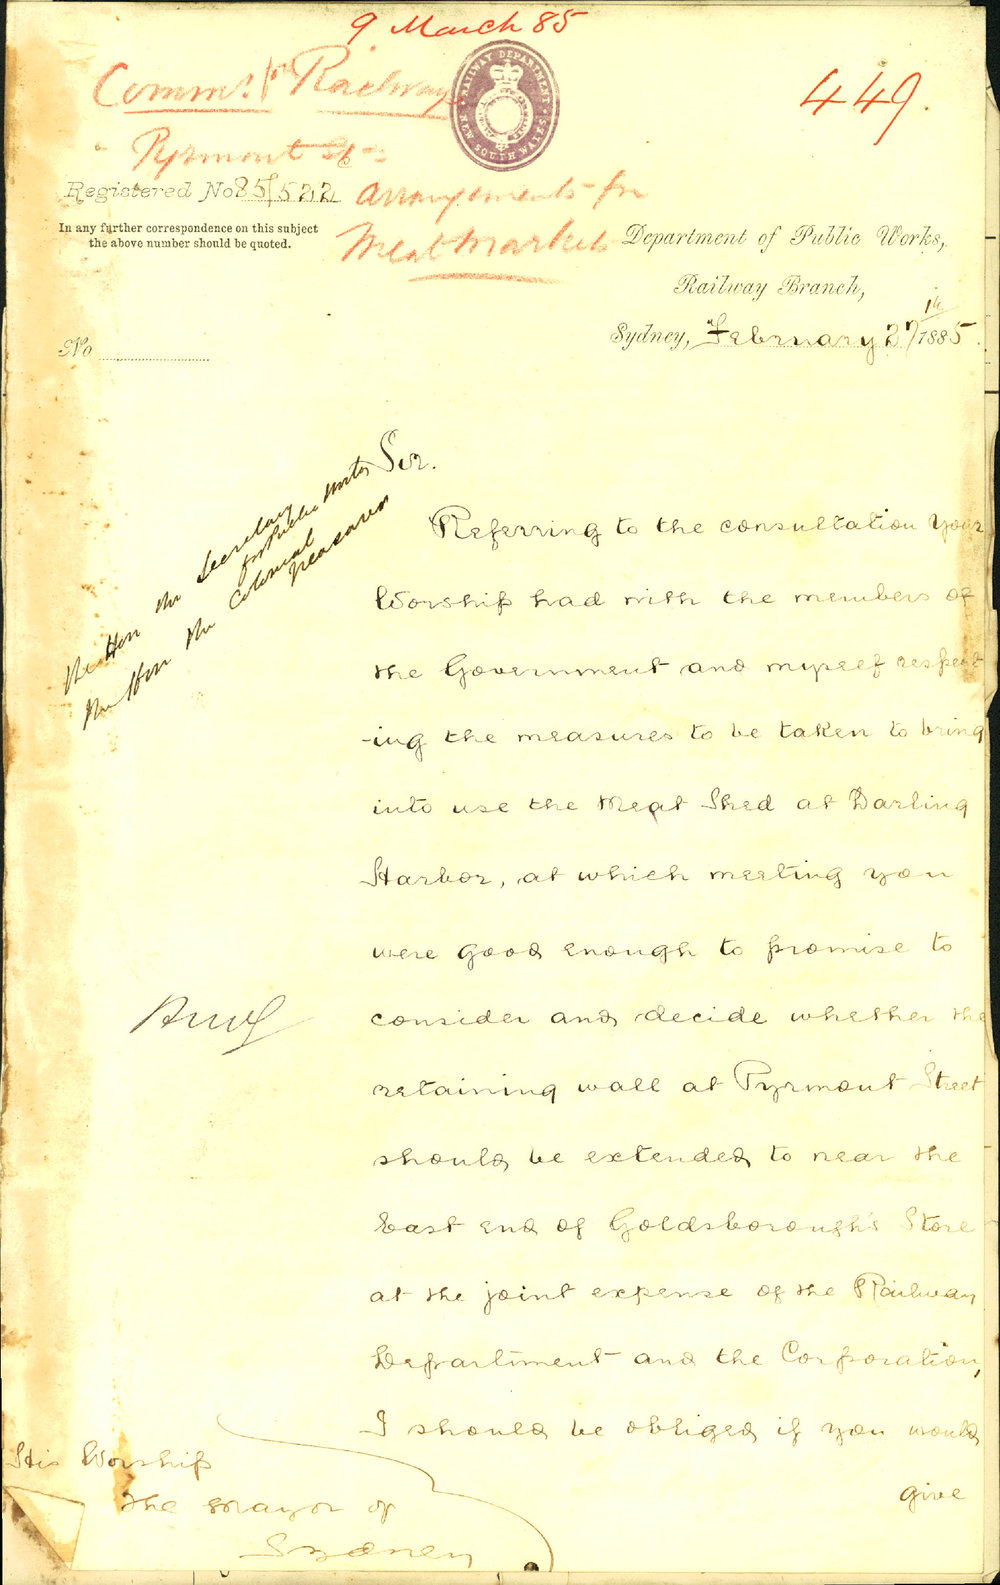 9 March 85
Commr. for Railways
449.
RAILWAY DEPARTMENT
NEW SOUTH WALES
Pyrmont St
Registered No 85/522
arrangements for
Meat Markets
In any further correspondence on this subject
the above number should be quoted.
Department of Public Works,
Railway Branch,
Sydney, February 27th 1885.
No
The Hon the Secretary
for Public Works
The Hon the Colonial
Treasurer
Sir.
Referring to the consultation Your
Worship had with the members of
the Government and myself respect
-ing the measures to be taken to bring
into use the Meat Shed at Darling
Harbor, at which meeting you
were good enough to promise to
consider and decide whether the
retaining wall at Pyrmont Street
should be extended to near the
East end of Goldsborough's Store
at the joint expense of the Railway
Department and the Corporation,
I should be obliged if you would
give
His Worship
The Mayor of
Sydney